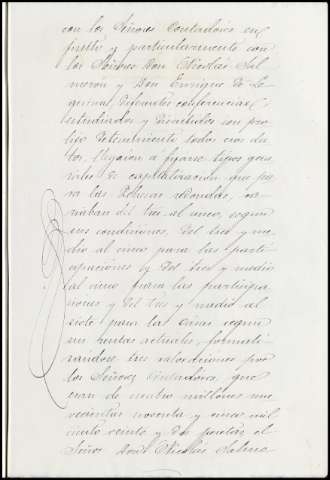 con los Señores Contadores en
particularmente con
los Señores Don Nicolás Sal
merón y Don Enrique de
diferentes conferencias
estudiados y discutidos con pro
lijo detenimiento todos los da
tos, llegaron a fijarse tipos gene
rales de capitalización que pa
ra las Dehesas
del tres al cinco, según
sus condiciones, del tres y me
dio al cinco para las parti
cipaciones y del tres y medio
al cinco para las participa
ciones y del tres y medio al
siete para las casas según
sus rentas actuales,
tres valoraciones por
los Señores Contadores, que
eran de cuatro millones no
vecientas noventa y cinco mil
ciento veinte y dos pesetas el
Señor Don Nicolás Salme